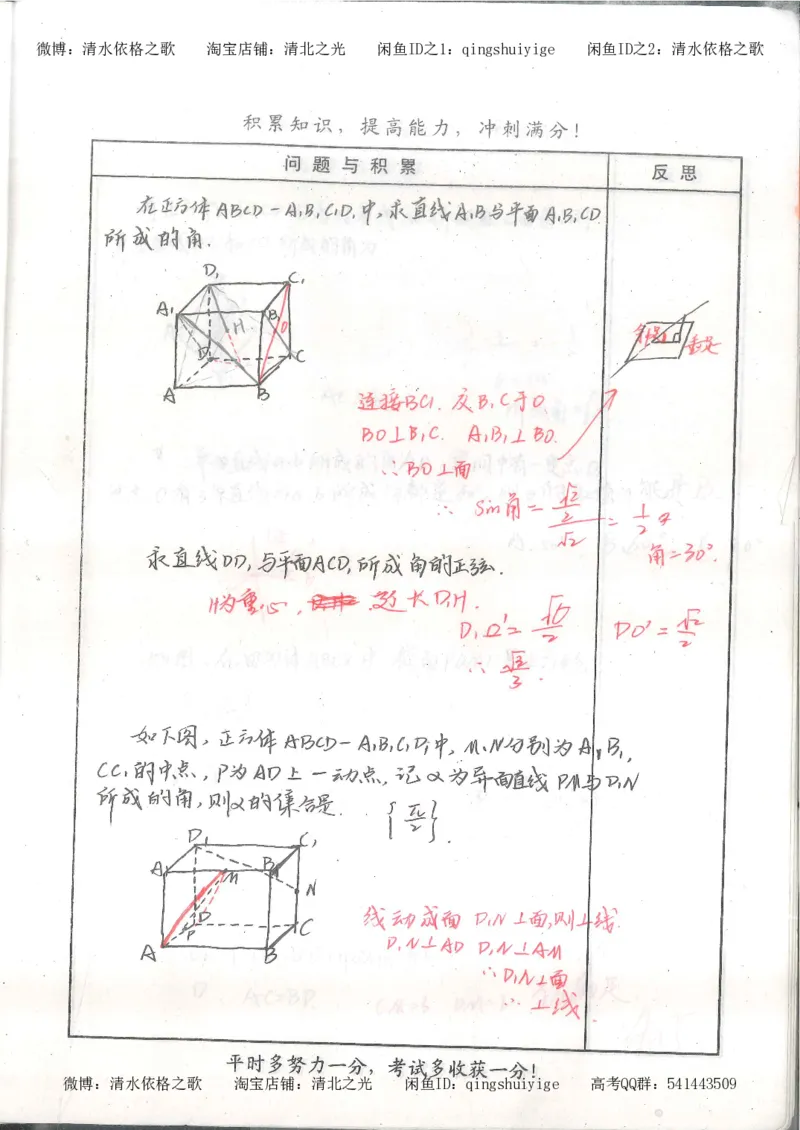 微博：清水依格之歌 淘宝店铺：清北之光 闲鱼ID之1：qingshuiyige 闲鱼ID之2：清水依格之歌
积累知识，提高能力，冲刺满分！
问题与积累 反思
在正方体ABCD-A₁B₁C₁D₁中，求直线A₁B与平面A₁B₁CD
所成的角.
D₁ C₁
A₁ B₁
H O
D C
A B
垂足
连接BC₁. 交B₁C于O
BO⊥B₁C. A₁B₁⊥BO.
∴BO⊥面
∴ Sin角=(√2/2)/√2=1/2
角=30°.
求直线DD₁与平面ACD₁所成角的正弦.
H为重心, 延长D₁H.
D₁O'=√6/2 DO'=√2/2
∴ √3/3.
如下图，正方体ABCD-A₁B₁C₁D₁中，M、N分别为A₁B₁,
CC₁的中点，P为AD上一动点，记α为异面直线PM与D₁N
所成的角，则α的集合是. {π/2}.
D₁ C₁
A₁ M B₁
N
D C
P
A B
线动成面 D₁N⊥面,则⊥线.
D₁N⊥AD D₁N⊥AM
∴D₁N⊥面
∴⊥线.
平时多努力一分，考试多收获一分！
微博：清水依格之歌 淘宝店铺：清北之光 闲鱼ID：qingshuiyige 高考QQ群：541443509